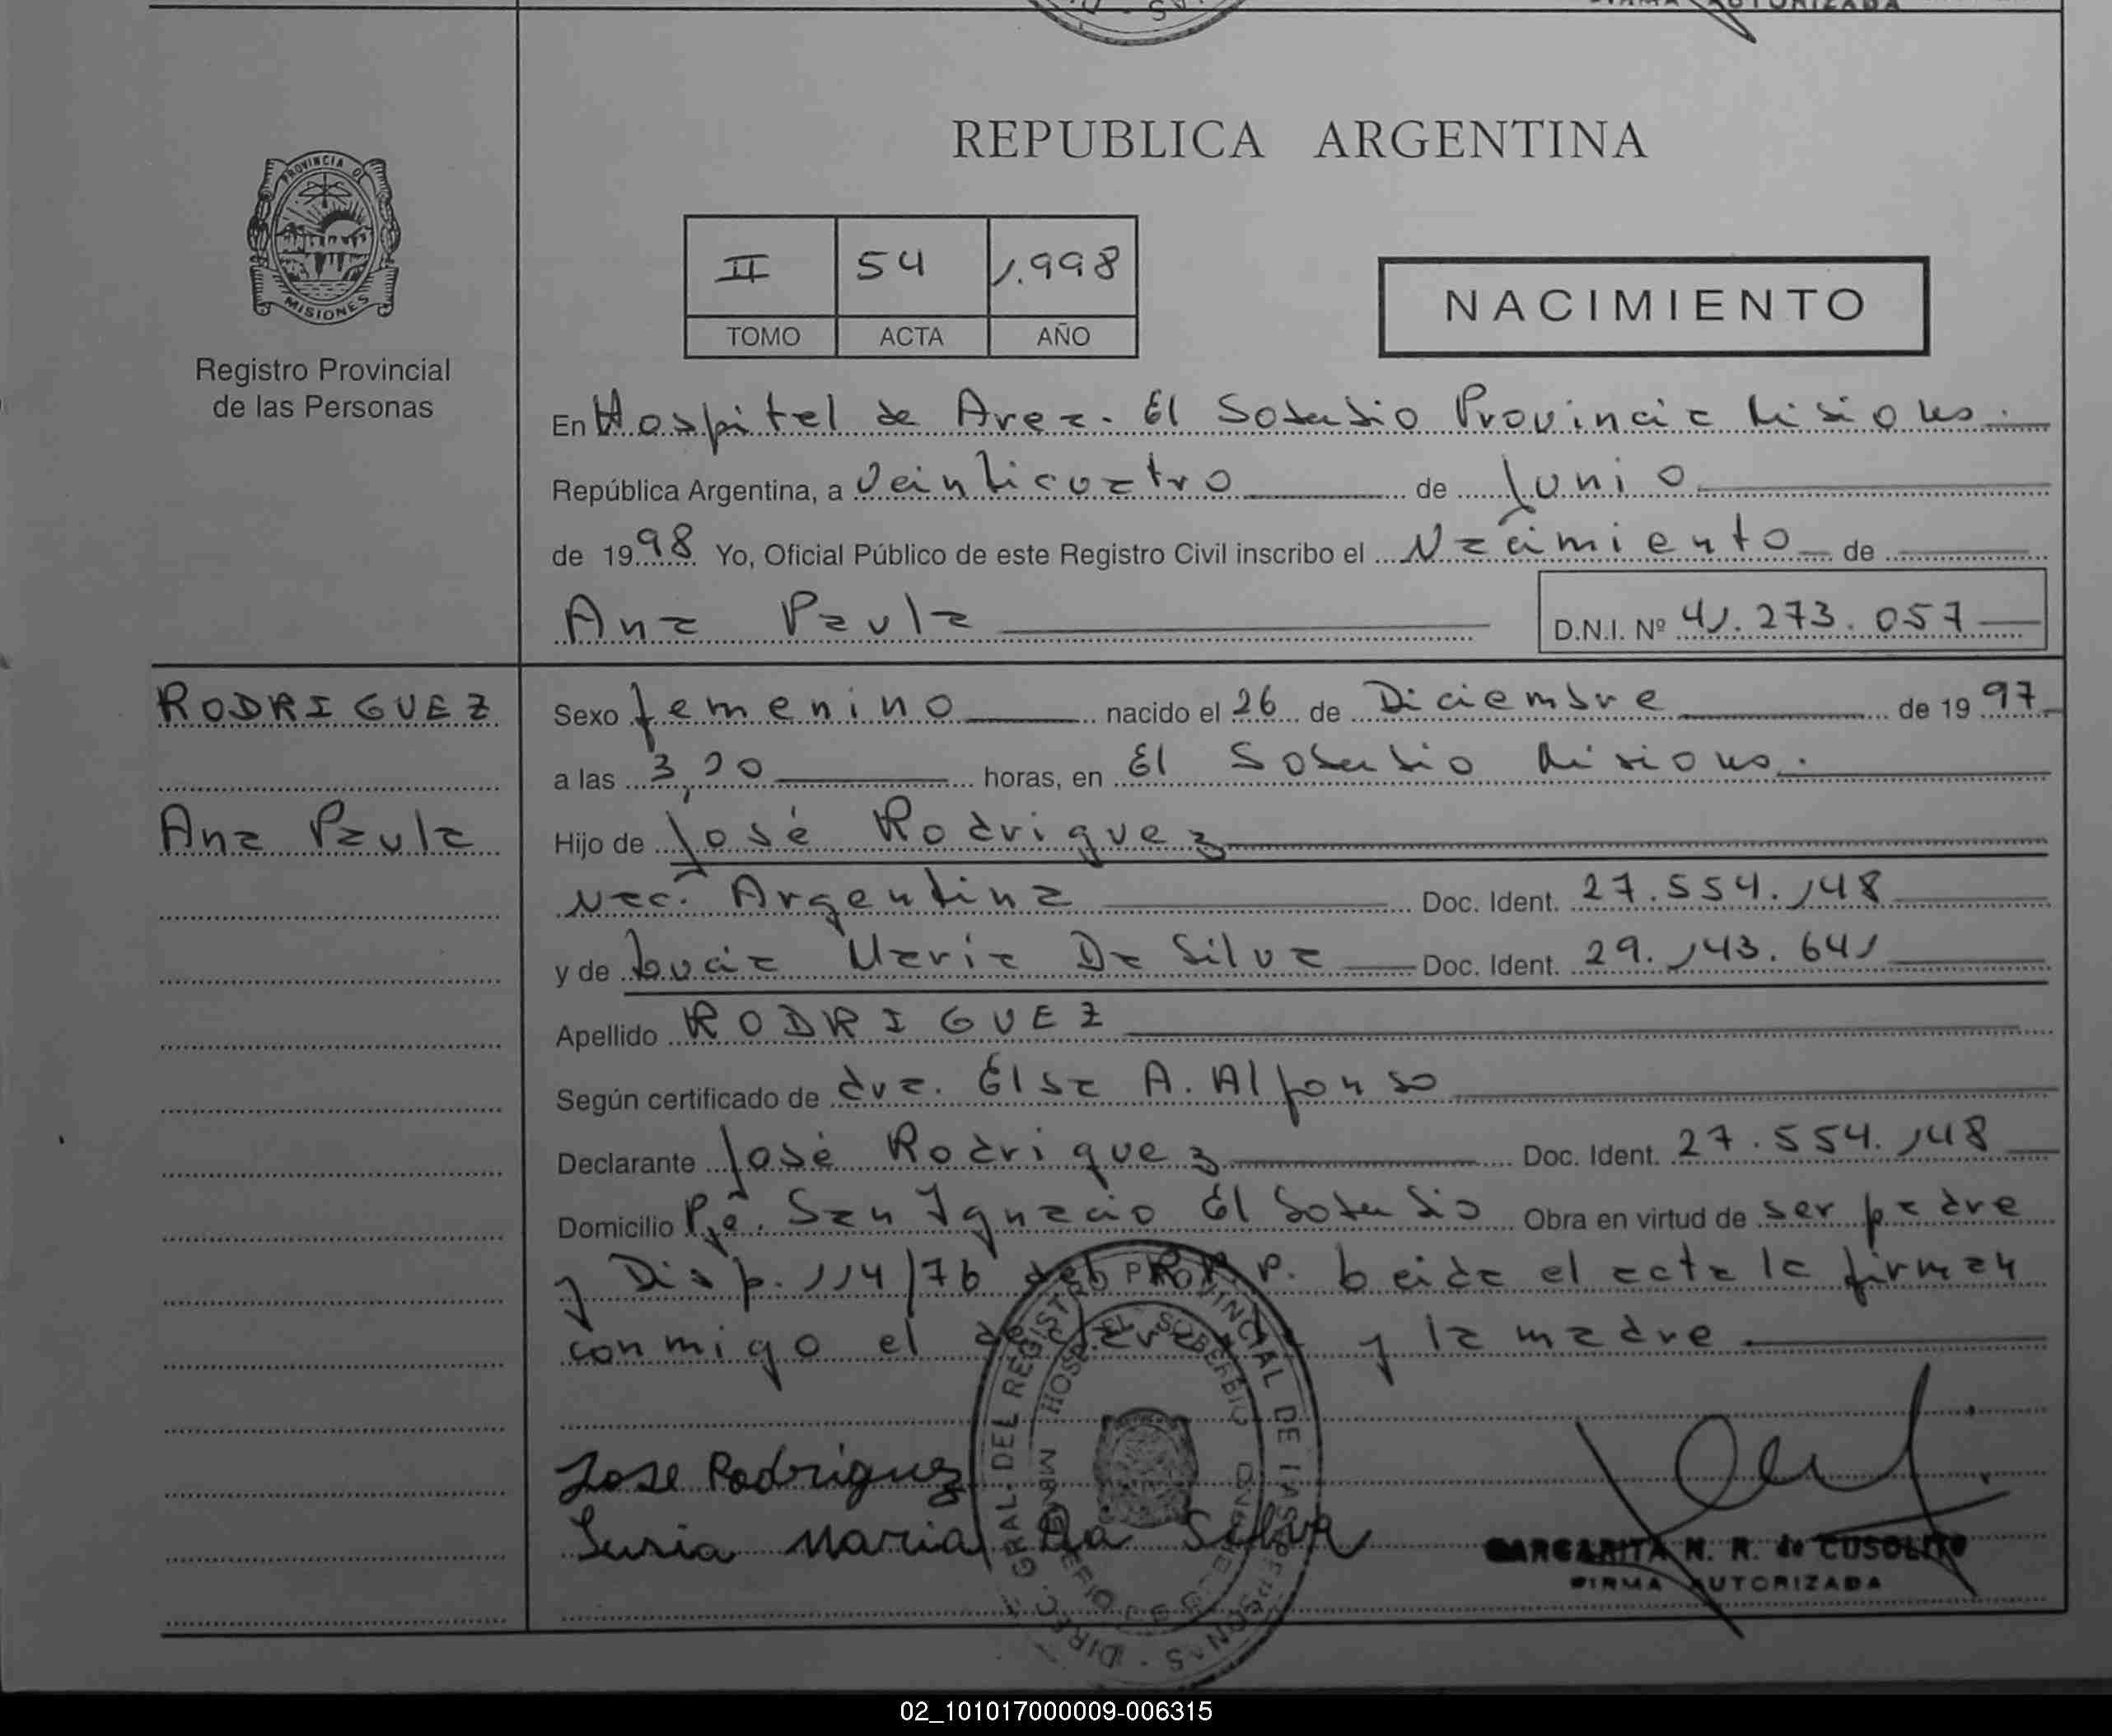 FIRMA AUTORIZADA
REPUBLICA ARGENTINA
PROVINCIA DE
MISIONES
Registro Provincial
de las Personas
II 54 1.998
TOMO ACTA AÑO
NACIMIENTO
En Hospital de Area. El Soberbio Provincia Misiones.
República Argentina, a Veinticuatro de Junio
de 1998 Yo, Oficial Público de este Registro Civil inscribo el Nacimiento de
Ana Paula
D.N.I. Nº 41.273.057
RODRIGUEZ
Ana Paula
Sexo femenino nacido el 26 de Diciembre de 1997
a las 3,20 horas, en El Soberbio Misiones.
Hijo de José Rodriguez
Nac. Argentina Doc. Ident. 27.554.148
y de Lucia Maria Da Silva Doc. Ident. 29.143.641
Apellido RODRIGUEZ
Según certificado de dra. Elsa A. Alfonso
Declarante José Rodriguez Doc. Ident. 27.554.148
Domicilio Pje. San Ignacio El Soberbio Obra en virtud de ser padre
y Disp. 114/76 del R.P.P. Leida el acta la firman
conmigo el declarante y la madre
Jose Rodriguez
Lusia Maria Da Silva
DIREC. GRAL. DEL REGISTRO PROVINCIAL DE LAS PERSONAS
HOSP. EL SOBERBIO
MARGARITA N. R. de CUSOLITO
FIRMA AUTORIZADA
02_101017000009-006315